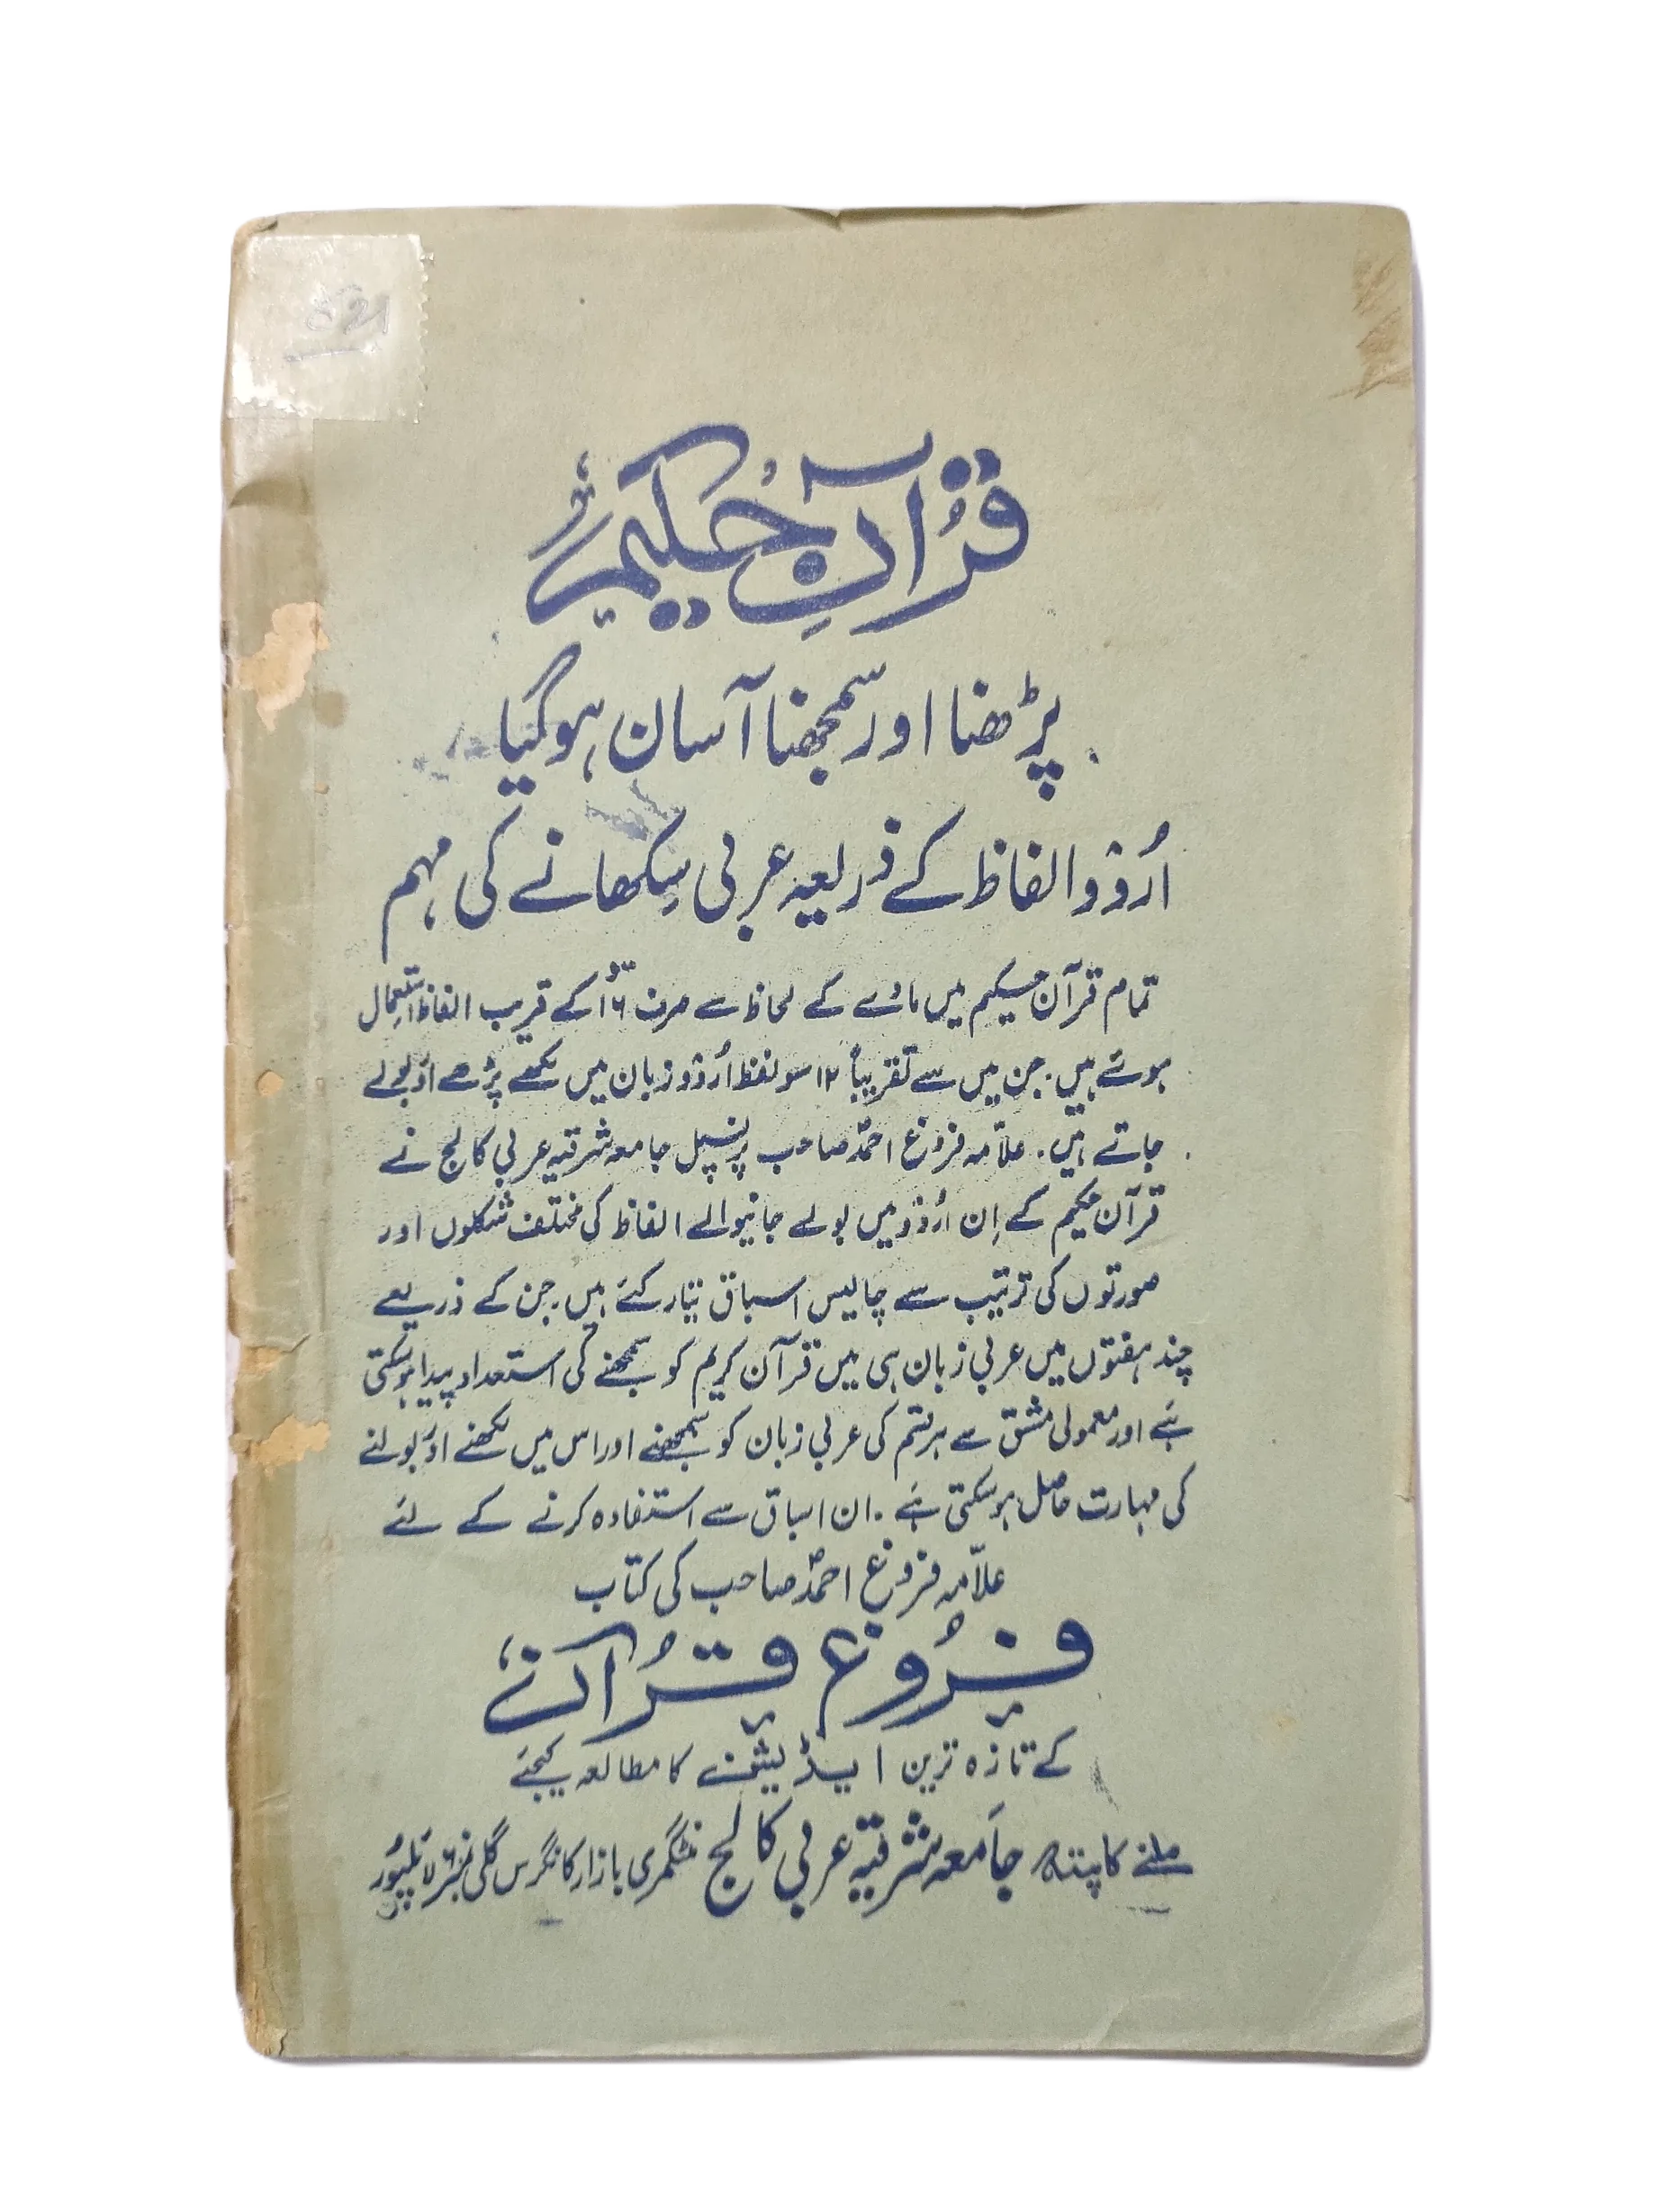 قرآنِ حکیم
پڑھنا اور سمجھنا آسان ہوگیا
اُردو الفاظ کے ذریعہ عربی سِکھانے کی مہم
تمام قرآن حکیم میں مادّے کے لحاظ سے صرف ۱۶ سو کے قریب الفاظ استعمال
ہوئے ہیں۔ جن میں سے تقریباً ۱۲ سو لفظ اُردو زبان میں لکھے پڑھے اور بولے
جاتے ہیں۔ علاّمہ فروغ احمد صاحب پرنسپل جامعہ شرقیہ عربی کالج نے
قرآن حکیم کے اِن اُردو میں بولے جانیوالے الفاظ کی مختلف شکلوں اور
صورتوں کی ترتیب سے چالیس اسباق تیّار کئے ہیں۔ جن کے ذریعے
چند ہفتوں میں عربی زبان ہی میں قرآن کریم کو سمجھنے کی استعداد پیدا ہوسکتی
ہے اور معمولی مشق سے ہر قسم کی عربی زبان کو سمجھنے اور اس میں لکھنے اور بولنے
کی مہارت حاصل ہوسکتی ہے۔ ان اسباق سے استفادہ کرنے کے لئے
علاّمہ فروغ احمد صاحب کی کتاب
فروُغِ قرُآن
کے تازہ ترین ایڈیشن کا مطالعہ کیجئے
ملنے کا پتہ جامعہ شرقیہ عربی کالج منٹگمری بازار کانگرس گلی نمبر ۶ لائلپوُر